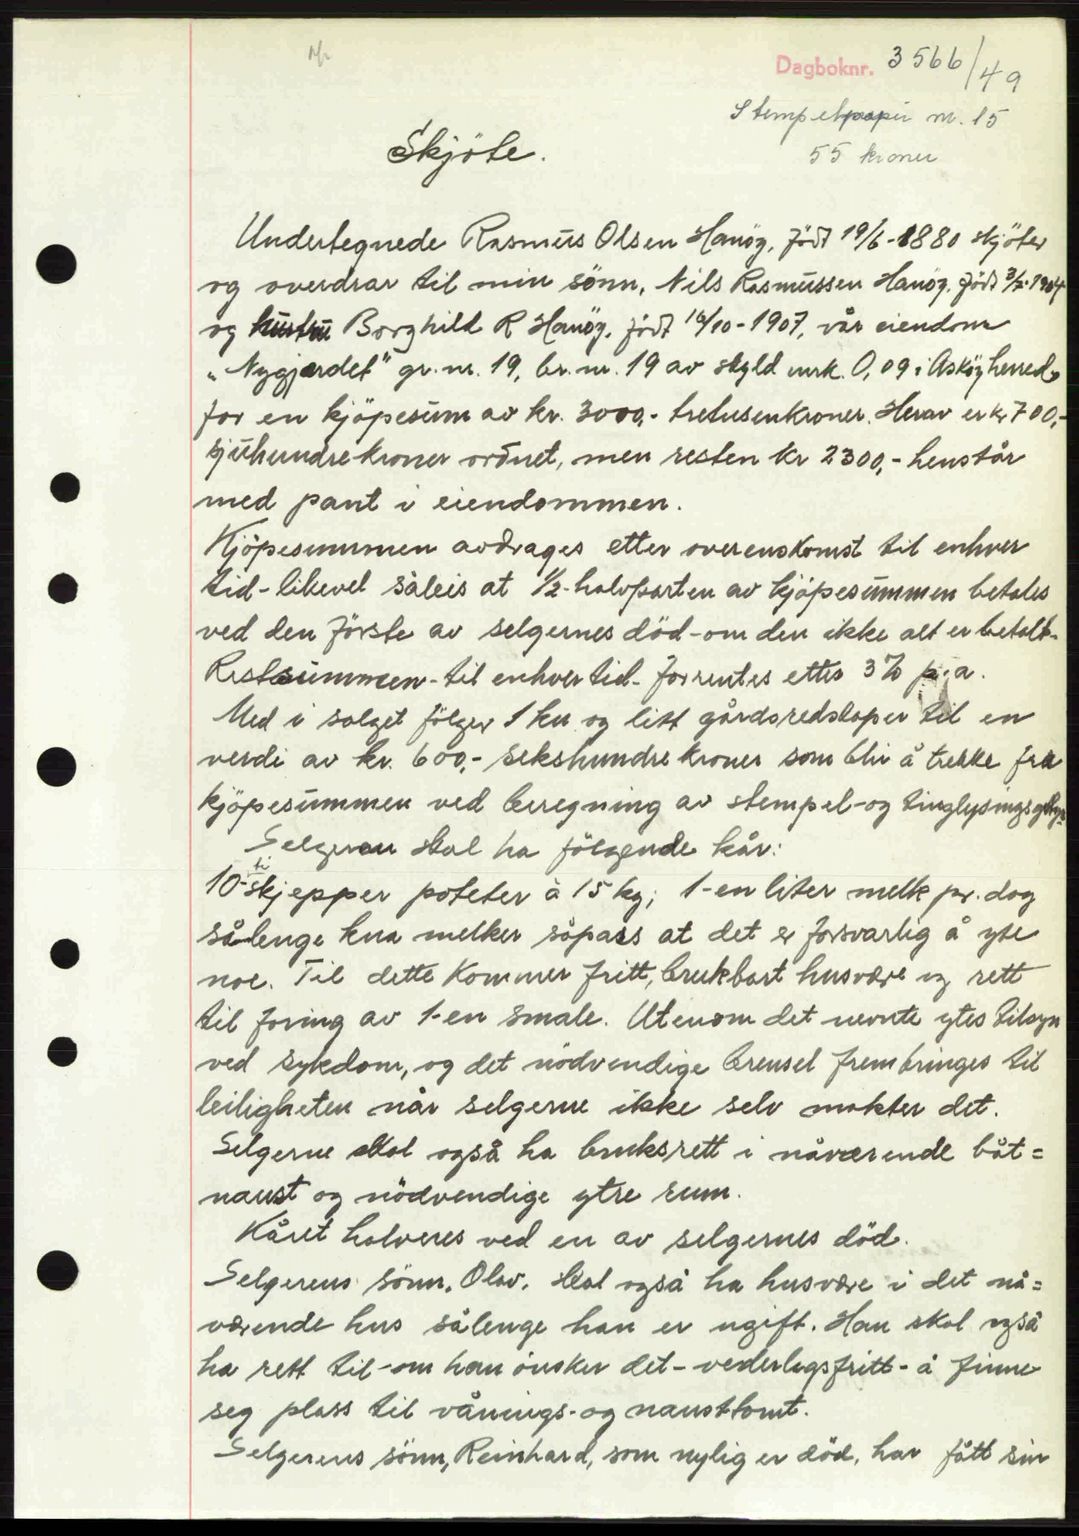 Dagboknr. 3566/49
Stempelpapir nr. 15
55 kroner
Skjöte.
Undertegnede Rasmus Olsen Hanöy, född 19/6-1880 skjöter
og overdrar til min sönn, Nils Rasmussen Hanöy, född 3/2-1904
og hustru Borghild R Hanöy, född 16/10-1907, vår eiendom
„Nygjerdet" gr. nr. 19, br. nr. 19 av skyld mrk. 0,09 i Asköy herred,
for en kjöpesum av kr. 3000,- tretusenkroner. Herav er kr 700,-
sjuhundrekroner ordnet, men resten kr 2300,- henstår
med pant i eiendommen.
Kjöpesummen avdrages etter overenskomst til enhver
tid - likevel såleis at 1/2-halvparten av kjöpesummen betales
ved den förste av selgernes död - om den ikke alt er betalt.
Restsummen - til enhver tid - forrentes etter 3% p.a.
Med i salget fölger 1 ku og litt gårdsredskaper til en
verdi av kr. 600,- sekshundrekroner som blir å trekke fra
kjöpesummen ved beregning av stempel- og tinglysingsgebyr.
Selgeren skal ha fölgende kår:
10-ti skjepper poteter à 15 kg; 1-en liter melk pr. dag
sålenge kua melker såpass at det er forsvarlig å yte
noe. Til dette kommer fritt, brukbart husvære og rett
til foring av 1-en smale. Utenom det nevnte ytes tilsyn
ved sykdom, og det nödvendige brensel frembringes til
leiligheten når selgerne ikke selv makter det.
Selgerne skal også ha bruksrett i nåværende båt=
naust og nödvendige ytre rum.
Kåret halveres ved en av selgernes död.
Selgerens sönn, Olav, skal også ha husvære i det nå=
værende hus sålenge han er ugift. Han skal også
ha rett til - om han önsker det - vederlagsfritt - å finne
seg plass til vånings- og nausttomt.
Selgerens sönn, Reinhard, som nylig er död, har fått sin